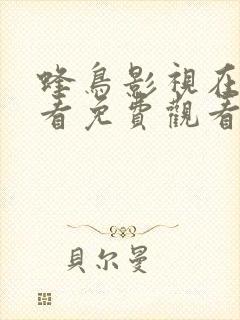 蜂鳥影視在
看免費觀看
貝尔曼